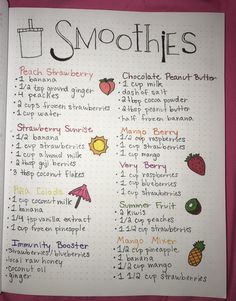 Smoothies
Peach Strawberry
• 1 banana
• 1/2 tsp ground ginger
• 4 peaches
• 2 cups frozen strawberries
• 1 cup water
Strawberry Sunrise
• 1 banana
• 1 cup strawberries
• 1 cup almond milk
• 2 tbsp goji berries
• 3 tbsp coconut flakes
Piña Colada
• 1 cup coconut milk
• 1 banana
• 1/4 tsp vanilla extract
• 1 cup frozen pineapple
Immunity Booster
• strawberries/blueberries
• local raw honey
• coconut oil
• ginger
Chocolate Peanut Butter
• 1 cup milk
• dash of salt
• 2 tbsp cocoa powder
• 2 tbsp peanut butter
• half frozen banana
Mango Berry
• 1/2 cup raspberries
• 1 cup strawberries
• 1 cup mango
Very Berry
• 1 cup raspberries
• 1 cup blueberries
• 1 cup strawberries
Summer Fruit
• 2 kiwis
• 1/2 cup peaches
• 1 1/2 cup strawberries
Mango Mixer
• 1/2 cup pineapple
• 1 banana
• 1/2 cup mango
• 1 1/2 cup strawberries